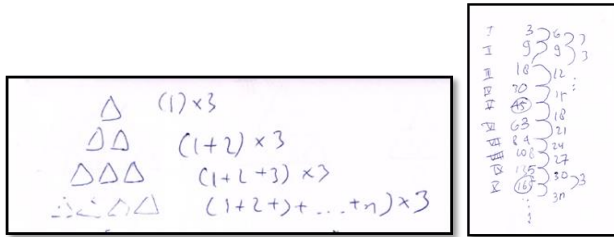 (1) × 3
(1+2) × 3
(1+2+3) × 3
(1+2+3+...+n) × 3
I 3
I 9
II 18
IV 30
V 45
VI 63
VII 84
VIII 108
135
V 165
6
9
12
15
18
21
24
27
30
3n
3
3
3